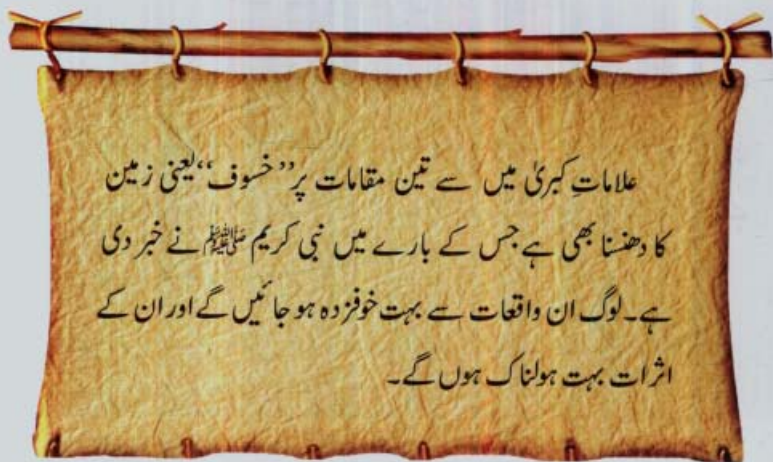 علاماتِ کبریٰ میں سے تین مقامات پر ’’خسوف‘‘ یعنی زمین
کا دھنسنا بھی ہے جس کے بارے میں نبی کریم ﷺ نے خبر دی
ہے۔ لوگ ان واقعات سے بہت خوفزدہ ہو جائیں گے اور ان کے
اثرات بہت ہولناک ہوں گے۔